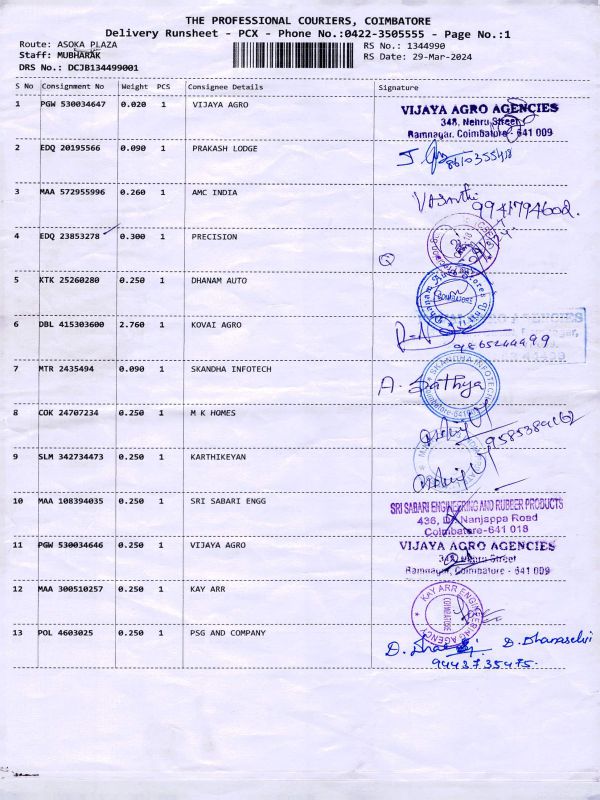 THE PROFESSIONAL COURIERS, COIMBATORE
Delivery Runsheet - PCX - Phone No.:0422-3505555 - Page No.:1
Route: ASOKA PLAZA
RS No.: 1344990
Staff: MUBHARAK
RS Date: 29-Mar-2024
DRS No.: DCJB134499001
S No Consignment No Weight PCS Consignee Details Signature
1 PGW 530034647 0.020 1 VIJAYA AGRO
VIJAYA AGRO AGENCIES
348, Nehru Street,
Ramnagar, Coimbatore - 641 009
2 EDQ 20195566 0.090 1 PRAKASH LODGE
8610355418
3 MAA 572955996 0.260 1 AMC INDIA
Vasanthi
9941794602.
4 EDQ 23853278 0.300 1 PRECISION
5 KTK 25260280 0.250 1 DHANAM AUTO
COIMBATORE
6 DBL 415303600 2.760 1 KOVAI AGRO
9865244499
7 MTR 2435494 0.090 1 SKANDHA INFOTECH
SKANDHA INFOTECH
A. Sathya
8 COK 24707234 0.250 1 M K HOMES
9585389662
9 SLM 342734473 0.250 1 KARTHIKEYAN
10 MAA 108394035 0.250 1 SRI SABARI ENGG
SRI SABARI ENGINEERING AND RUBBER PRODUCTS
436, Nanjappa Road
Coimbatore-641 018
11 PGW 530034646 0.250 1 VIJAYA AGRO
VIJAYA AGRO AGENCIES
348, Nehru Street
Ramnagar, Coimbatore - 641 009
12 MAA 300510257 0.250 1 KAY ARR
KAY ARR ENGINEERING AGENCY
COIMBATORE
13 POL 4603025 0.250 1 PSG AND COMPANY
D. Dhanaselvi
9443735475.